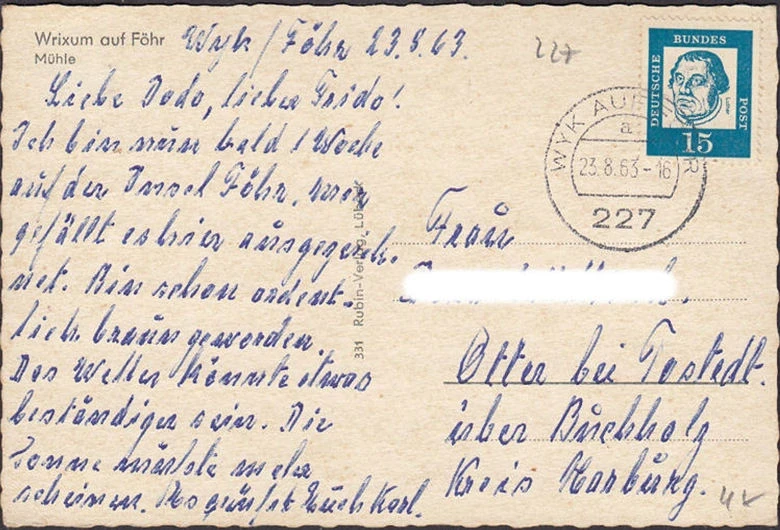 Wrixum auf Föhr
Mühle
Wyk / Föhr 23.8.63.
227
Liebe Dodo, lieber Frido!
Ich bin nun bald 1 Woche
auf der Insel Föhr,
gefällt es hier ausgezeich-
net. Bin schon ordent-
lich braun geworden
Das Wetter könnte etwas
beständiger sein. Die
Sonne müßte mehr
scheinen. Es grüßt Euch Karl.
331 Rubin-Verlag, Lübeck
DEUTSCHE
BUNDES
POST
15
WYK AUF FÖHR
a
23.8.63-16
227
Frau
Otter bei Tostedt.
über Buchholz
Kreis Harburg.